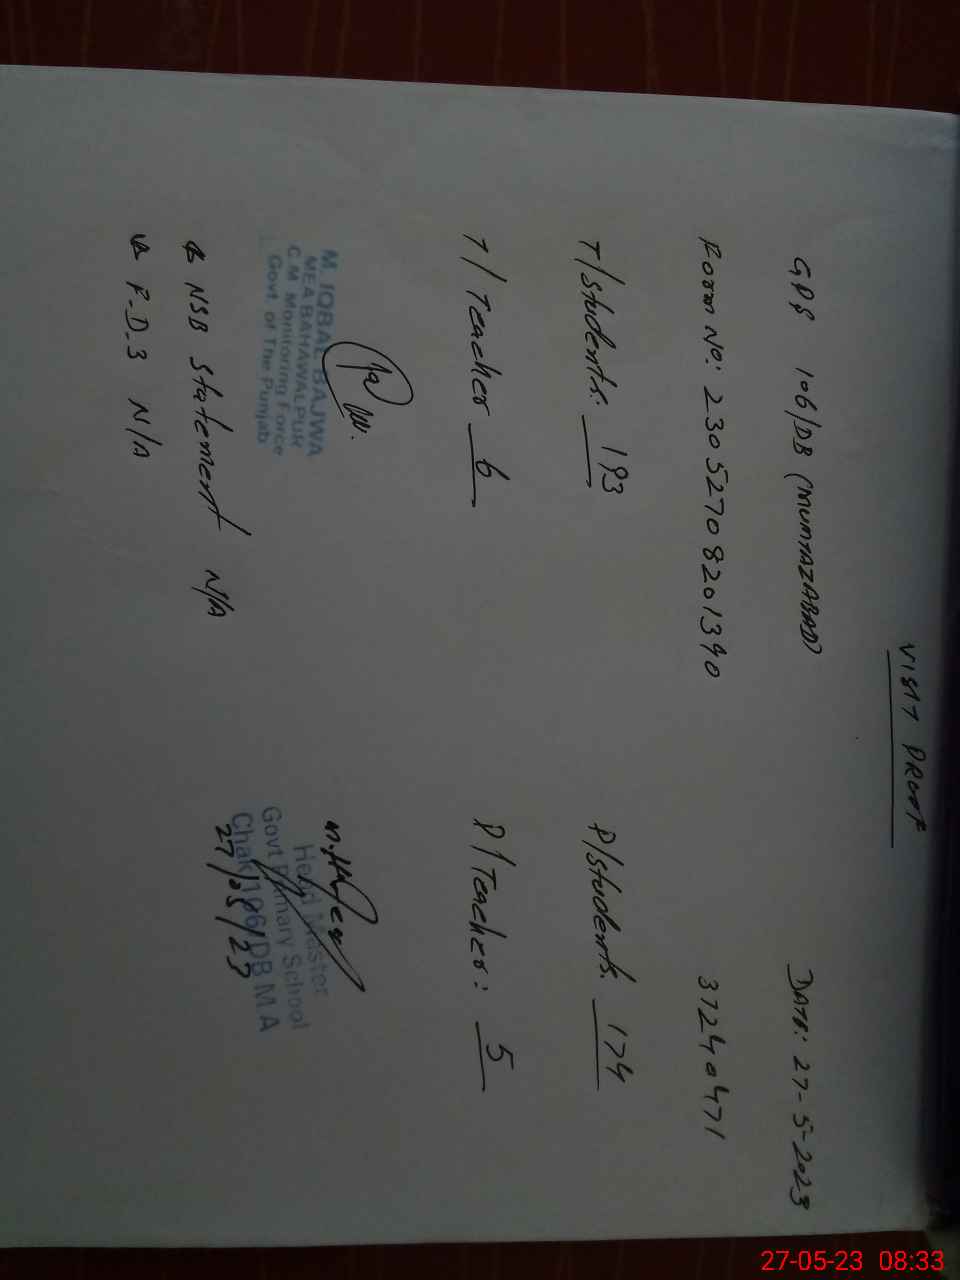 VISIT PROOF
GPS 106/DB (MUMTAZABAD) DATE: 27-5-2023
Form No: 23052708201390 37240471
T/students: 193 P/students: 174
T/Teacher 6 P/Teacher: 5
M. IQBAL BAJWA
MEA BAHAWALPUR
C.M. Monitoring Force
Govt. of The Punjab
Head Master
Govt Primary School
Chak 106/DB M A
27/05/23
NSB Statement N/A
F.D-3 N/A
27-05-23 08:33